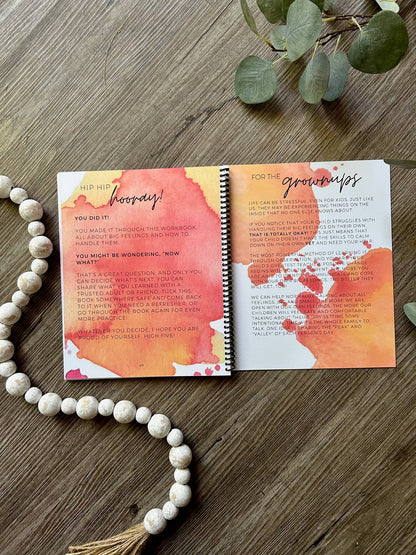 HIP HIP
hooray!
YOU DID IT!
YOU MADE IT THROUGH THIS WORKBOOK
ALL ABOUT BIG FEELINGS AND HOW TO
HANDLE THEM.
YOU MIGHT BE WONDERING, "NOW
WHAT?"
THAT'S A GREAT QUESTION, AND ONLY YOU
CAN DECIDE WHAT'S NEXT. YOU CAN
SHARE WHAT YOU LEARNED WITH A
TRUSTED ADULT OR FRIEND, TUCK THIS
BOOK SOMEWHERE SAFE AND COME BACK
TO IT WHEN YOU NEED A REFRESHER, OR
GO THROUGH THE BOOK AGAIN FOR EVEN
MORE PRACTICE!
WHATEVER YOU DECIDE, I HOPE YOU ARE
PROUD OF YOURSELF. HIGH FIVE!
FOR THE grownups
LIFE CAN BE STRESSFUL, EVEN FOR KIDS. JUST LIKE
US, THEY MAY BE EXPERIENCING THINGS ON THE
INSIDE THAT NO ONE ELSE KNOWS ABOUT.
IF YOU NOTICE THAT YOUR CHILD STRUGGLES WITH
HANDLING THEIR BIG FEELINGS ON THEIR OWN,
THAT IS TOTALLY OKAY! IT JUST MEANS THAT
YOUR CHILD DOESN'T HAVE THE SKILLS TO CALM
DOWN ON THEIR OWN YET AND NEED YOUR HELP.
THE MOST POWERFUL METHOD OF LEARNING IS
THROUGH
WE CAN HELP
FEELINGS.
OKAY WITH THE
CHILDREN WILL BE AND COMFORTABLE
TALKING ABOUT THEIRS. TRY SETTING SOME
INTENTIONAL TIME WITH THE WHOLE FAMILY TO
TALK, ONE IDEA IS SHARING THE "PEAK" AND
"VALLEY" OF EACH PERSON'S DAY.